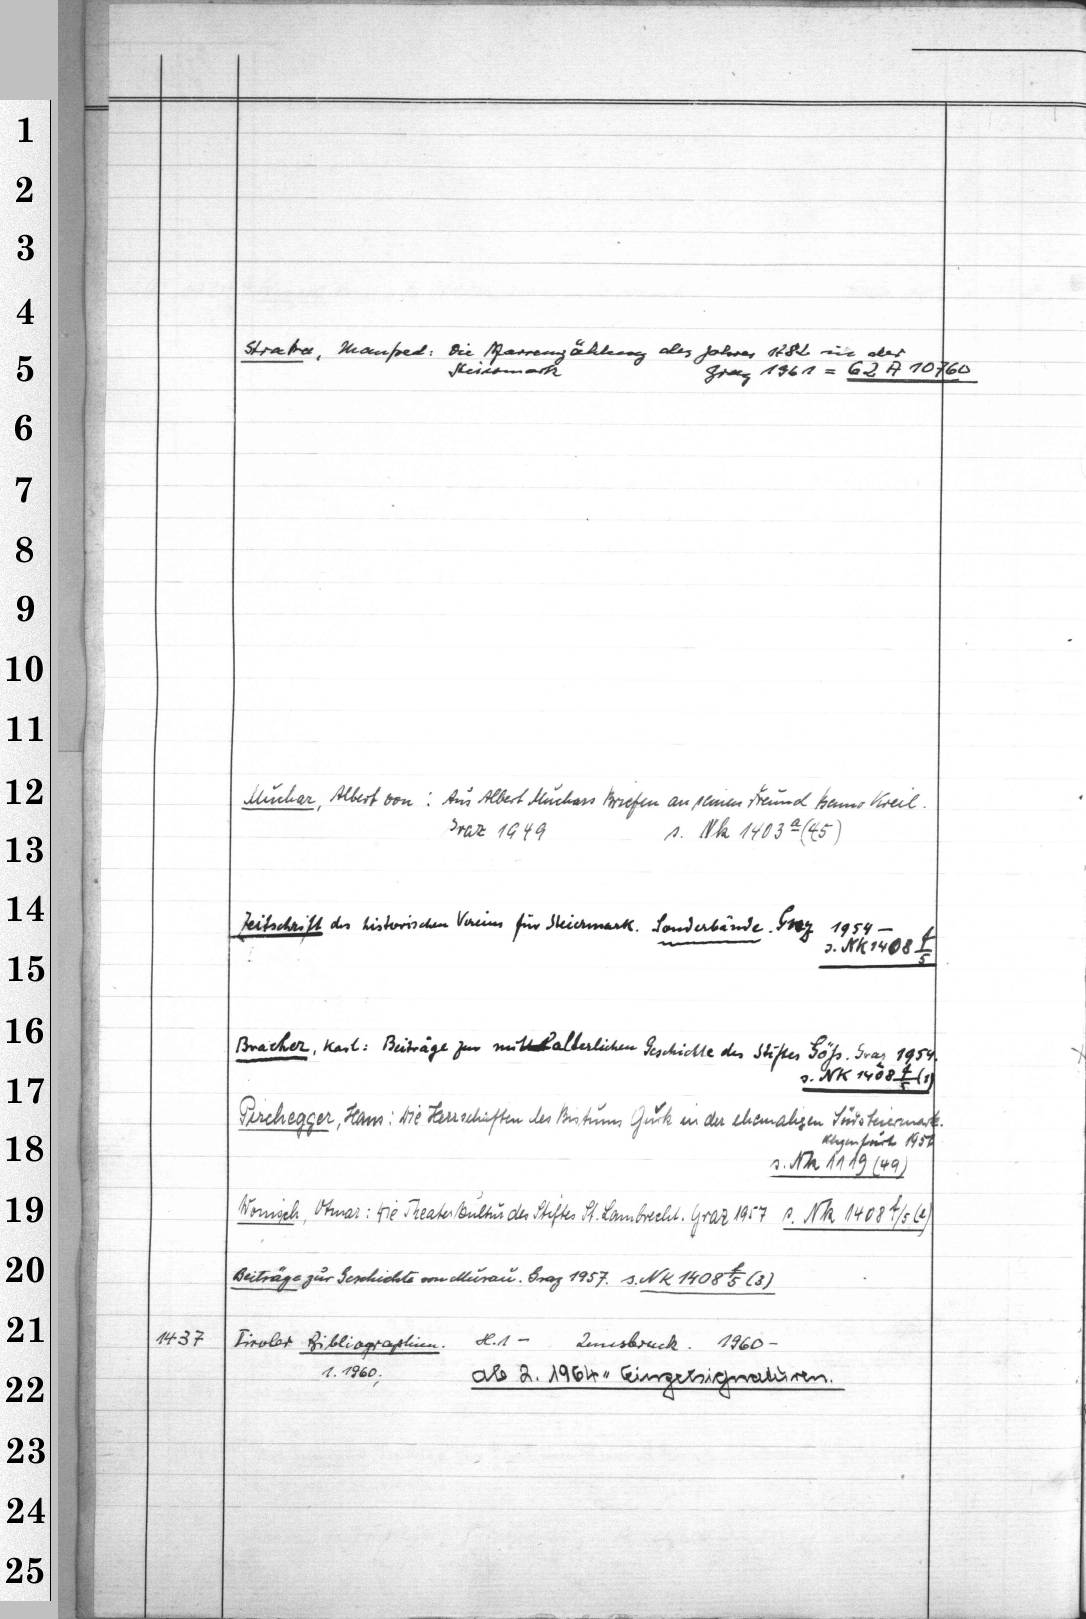 1
2
3
4
5
6
7
8
9
10
11
12
13
14
15
16
17
18
19
20
21
22
23
24
25
Straka, Manfred: Die Pfarrenzählung des Jahres 1782 in der
Steiermark Graz 1961 = 62 A 10760
Muchar, Albert von: Aus Albert Muchars Briefen an seinen Freund Benno Kreil.
Graz 1949 s. Nk 1403 a (45)
Zeitschrift des historischen Vereines für Steiermark. Sonderbände. Graz 1954 –
s. NK 1408 f/5
Bracher, Karl: Beiträge zur mittelalterlichen Geschichte des Stiftes Göß. Graz 1954.
s. NK 1408 f/5 (1)
Pirchegger, Hans: Die Herrschaften des Bistums Gurk in der ehemaligen Südsteiermark.
Klagenfurt 1956
s. Nk 1119 (49)
Wonisch, Otmar: Die Theaterkultur des Stiftes St. Lambrecht. Graz 1957 s. Nk 1408 f/5 (2)
Beiträge zur Geschichte von Murau. Graz 1957. s. NK 1408 f/5 (3)
1437 Tiroler Bibliographien. H. 1 – Innsbruck. 1960 –
1. 1960; ab 2. 1964 " Einzelsignaturen.